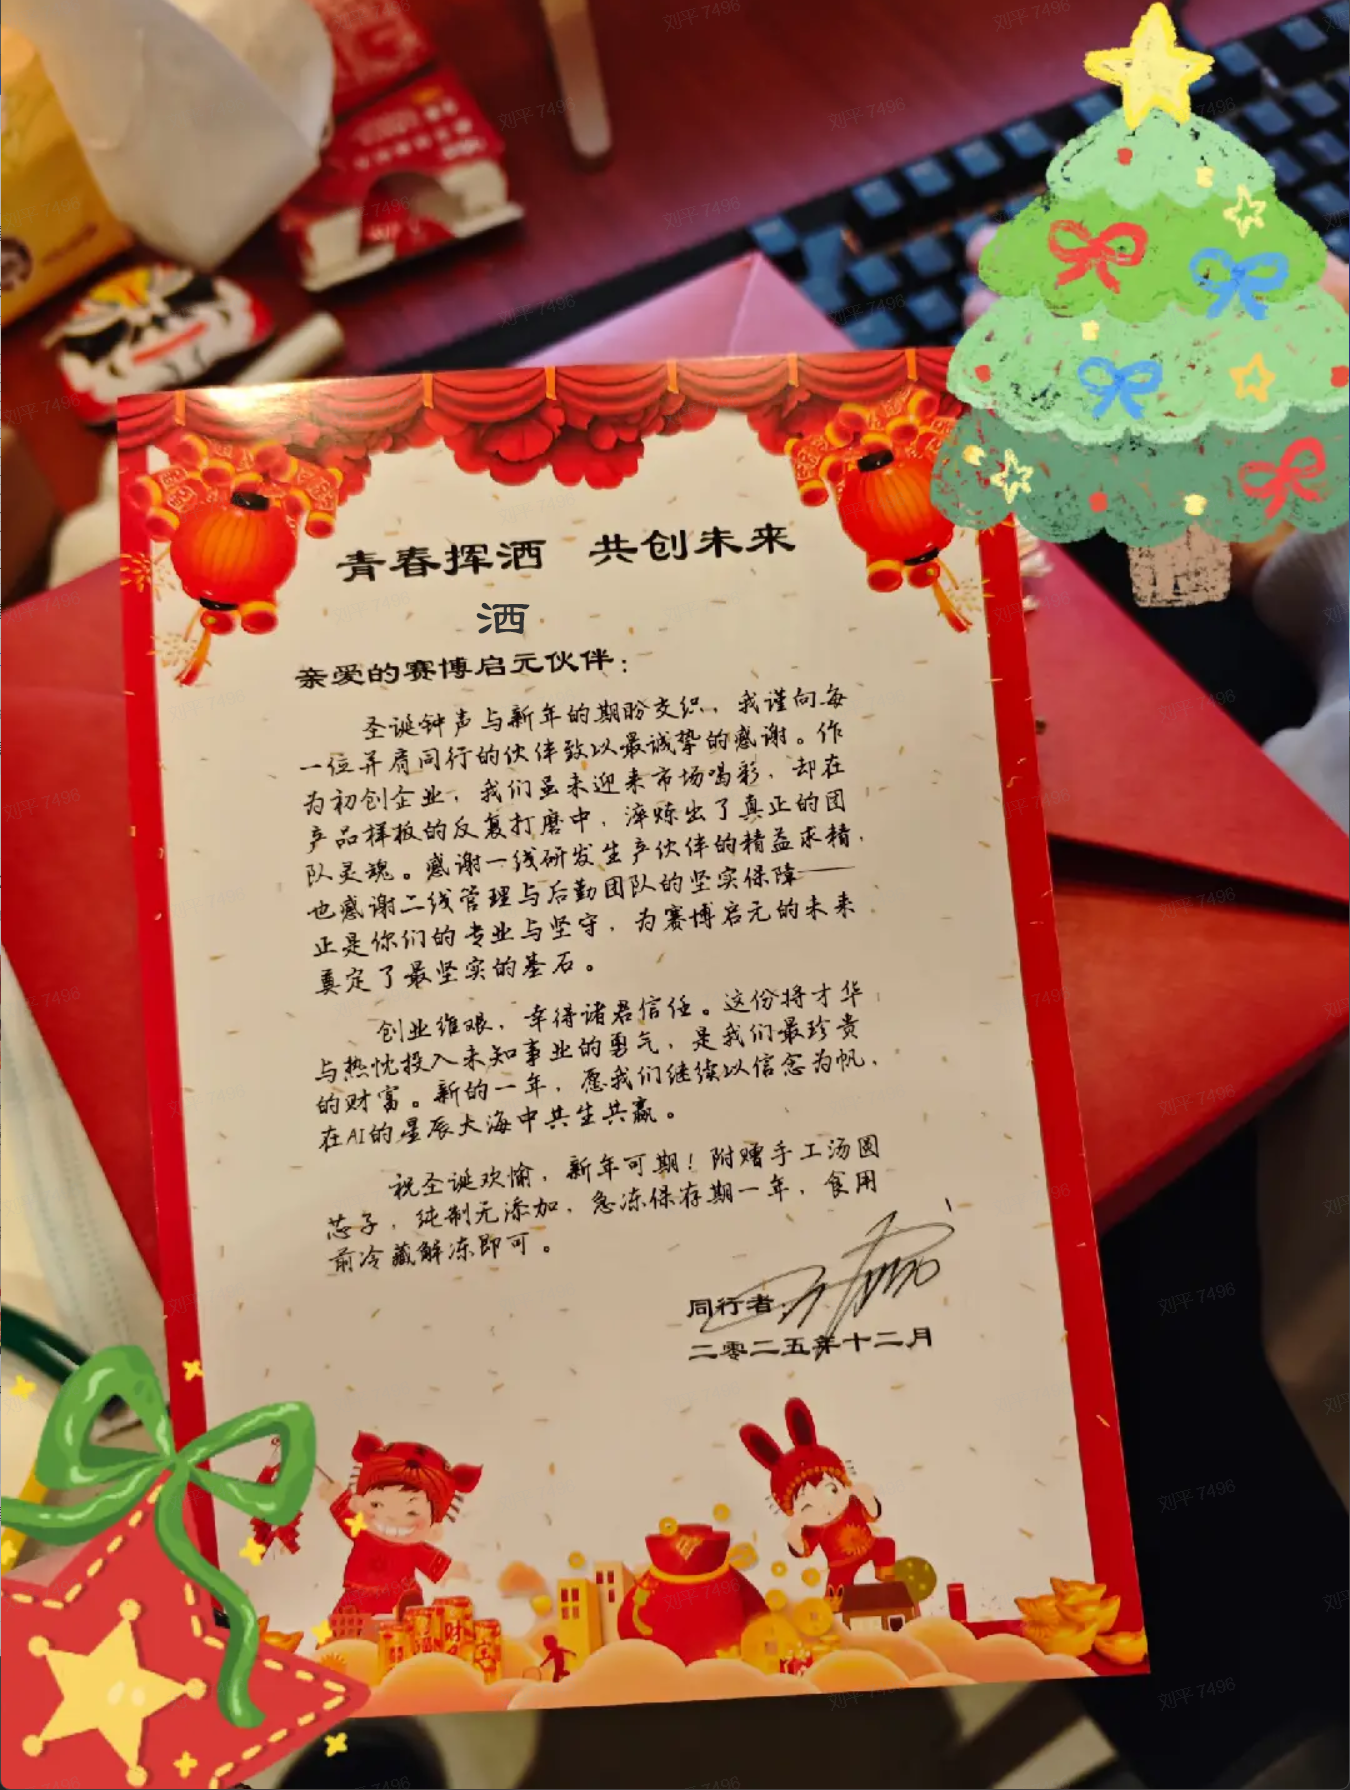 青春挥洒 共创未来
洒
亲爱的赛博启元伙伴：
圣诞钟声与新年的期盼交织，我谨向每
一位并肩同行的伙伴致以最诚挚的感谢。作
为初创企业，我们虽未迎来市场喝彩，却在
产品样板的反复打磨中，淬炼出了真正的团
队灵魂。感谢一线研发生产伙伴的精益求精，
也感谢二线管理与后勤团队的坚实保障——
正是你们的专业与坚守，为赛博启元的未来
奠定了最坚实的基石。
创业维艰，幸得诸君信任。这份将才华
与热忱投入未知事业的勇气，是我们最珍贵
的财富。新的一年，愿我们继续以信念为帆，
在AI的星辰大海中共生共赢。
祝圣诞欢愉，新年可期！附赠手工汤圆
芯子，纯制无添加，急冻保存期一年，食用
前冷藏解冻即可。
同行者
二零二五年十二月
刘平 7496